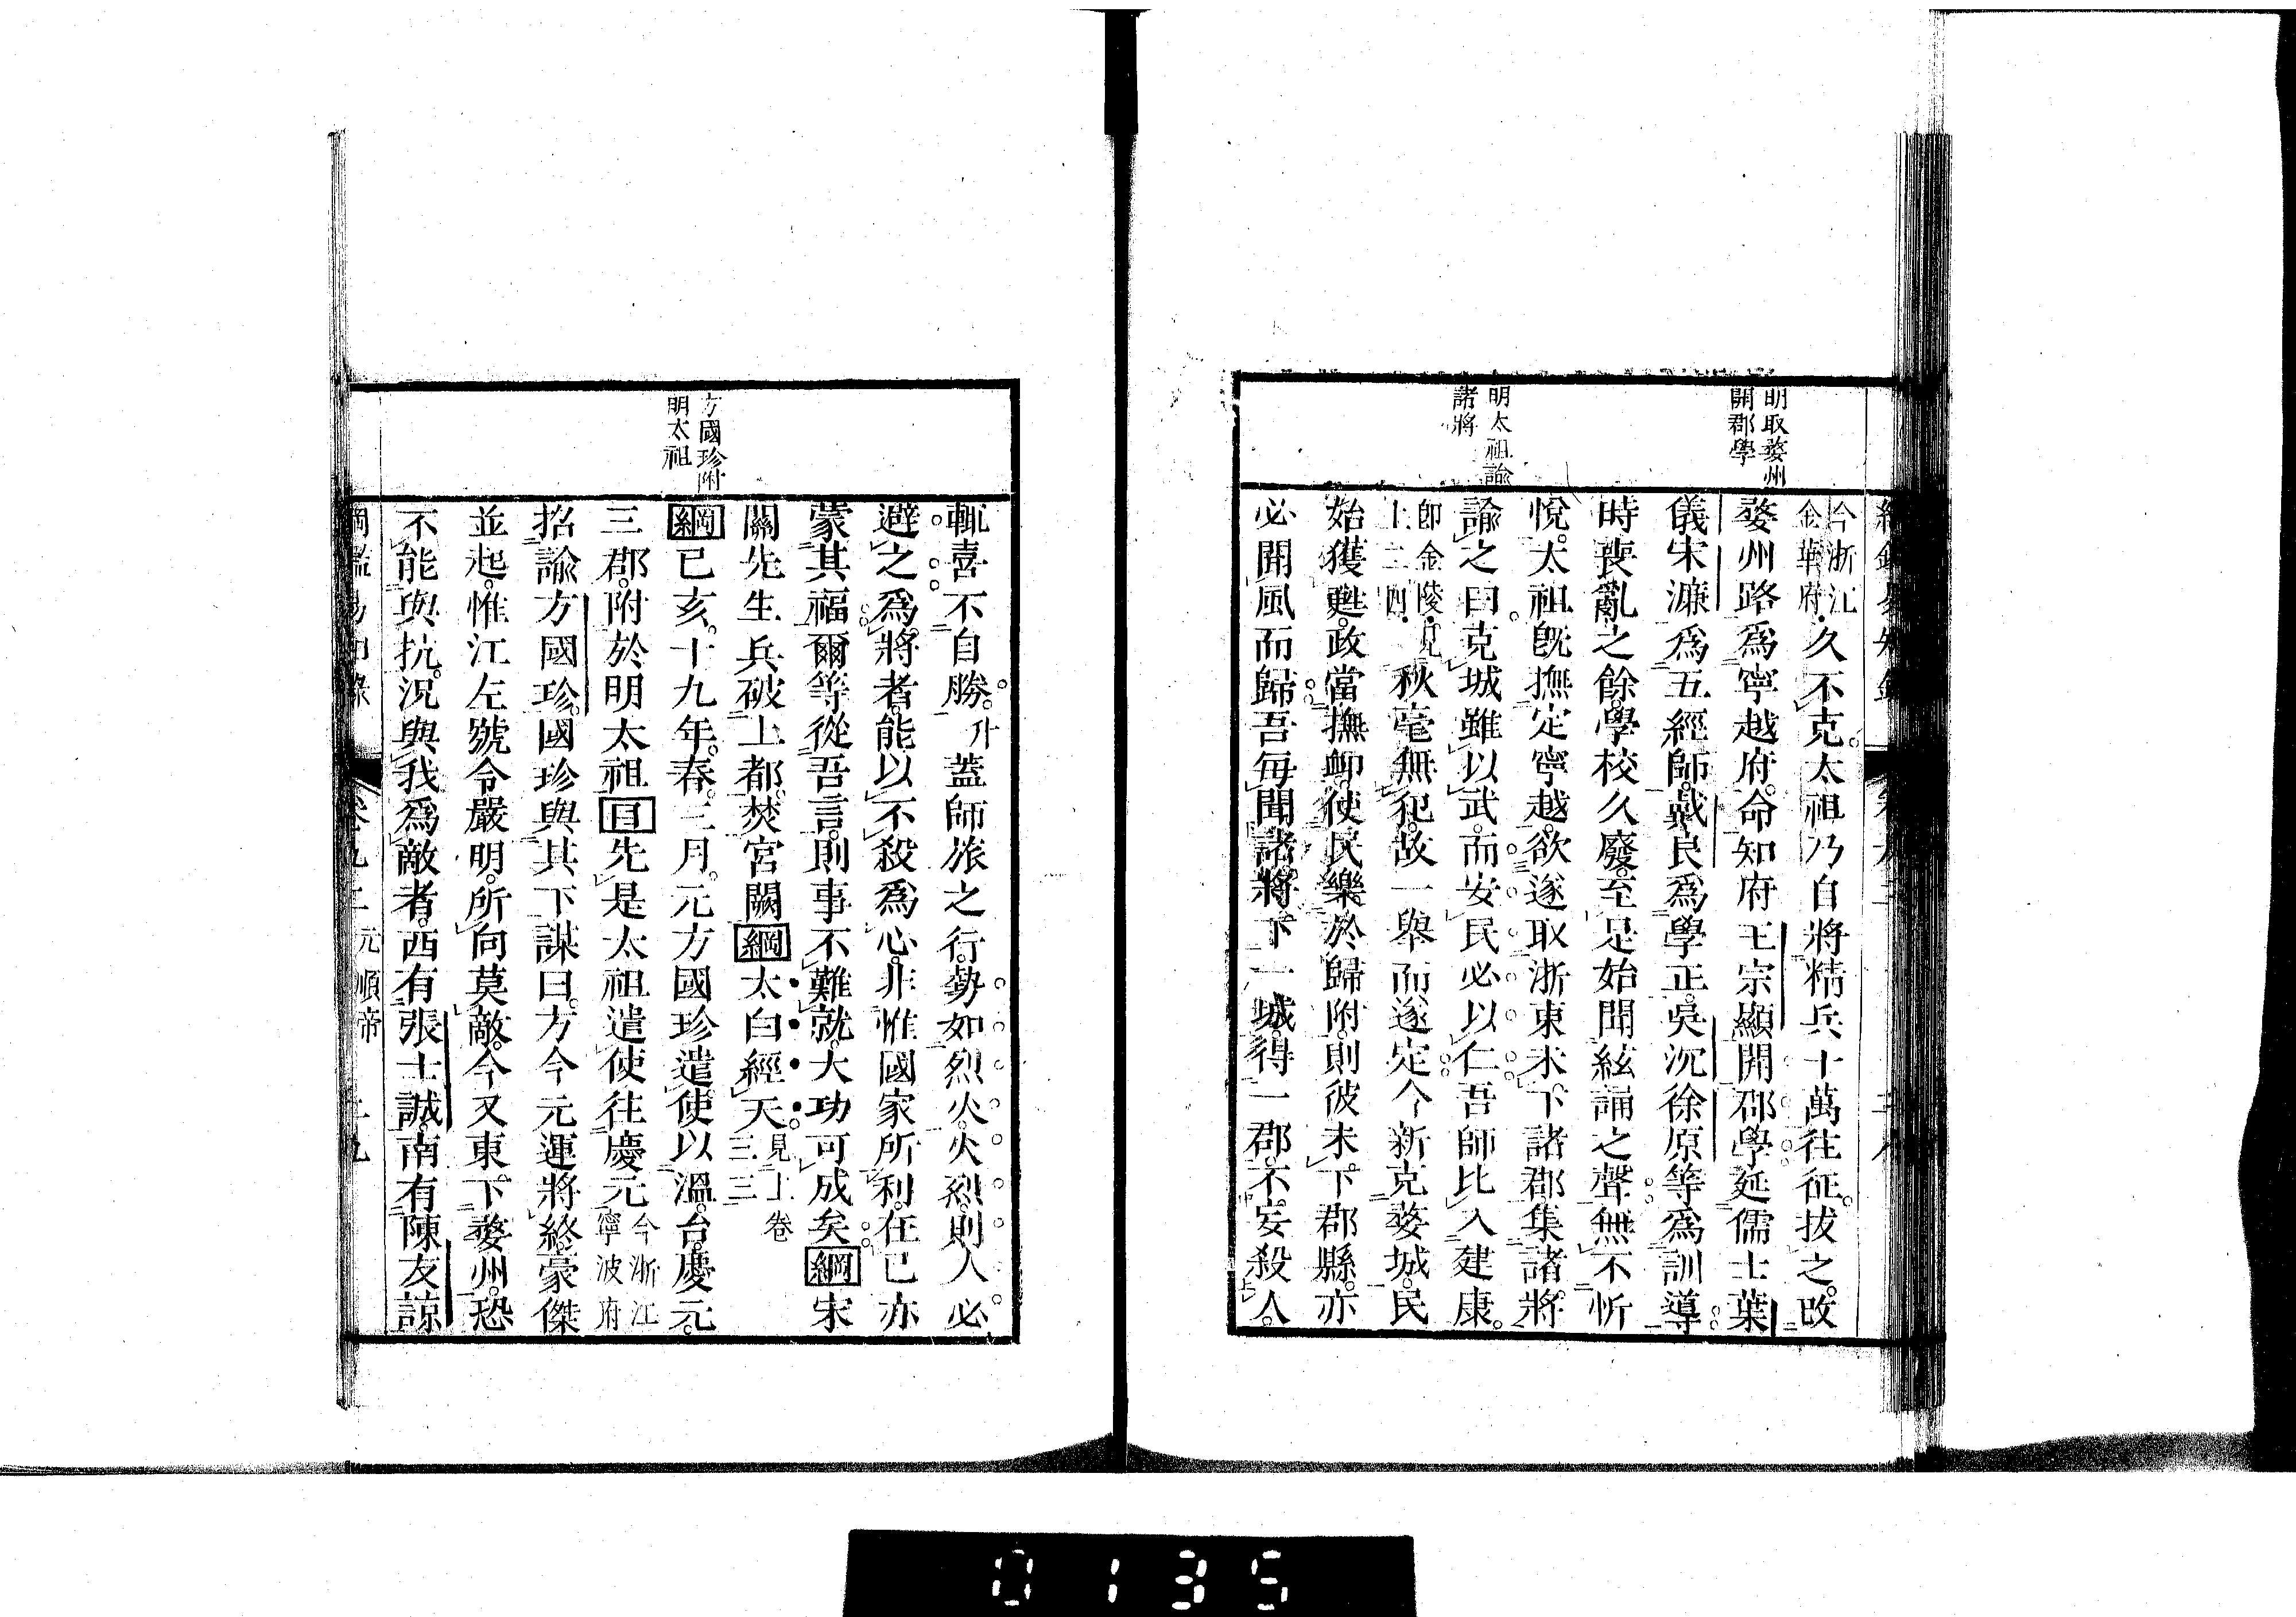 明取婺州
開郡學
明太祖諭
諸將
今浙江
金華府久不克太祖乃自將精兵十萬往征拔之改
婺州路爲寧越府命知府王宗顯開郡學延儒士葉
儀宋濂爲五經師戴良爲學正吳沉徐原等爲訓導
時喪亂之餘學校久廢至是始聞絃誦之聲無不忻
悅太祖旣撫定寧越欲遂取浙東未下諸郡集諸將
諭之曰克城雖以武而安民必以仁吾師比入建康
卽金陵見
上二四秋毫無犯故一舉而遂定今新克婺城民
始獲甦政當撫䘏使民樂於歸附則彼未下郡縣亦
必聞風而歸吾每聞諸將下一城得一郡不妄殺人
方國珍附
明太祖
輒喜不自勝升蓋師旅之行勢如烈火火烈則人必
避之爲將者能以不殺爲心非惟國家所利在己亦
蒙其福爾等從吾言則事不難就大功可成矣綱宋
關先生兵破上都焚宮闕綱太白經天見上卷
三三
綱己亥十九年春三月元方國珍遣使以溫台慶元
三郡附於明太祖目先是太祖遣使往慶元今浙江
寧波府
招諭方國珍國珍與其下謀曰方今元運將終豪傑
並起惟江左號令嚴明所向莫敵今又東下婺州恐
不能與抗況與我爲敵者西有張士誠南有陳友諒
元順帝